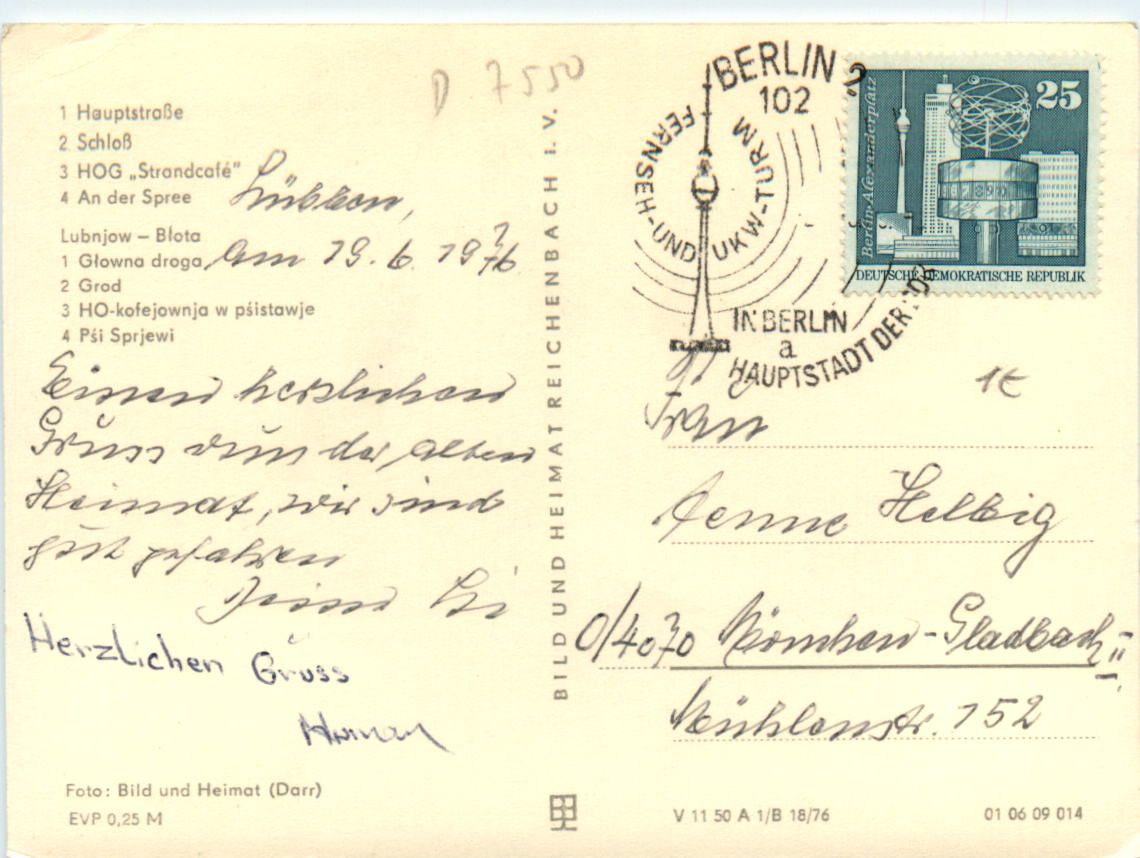 D 7550
1 Hauptstraße
2 Schloß
3 HOG „Strandcafé"
4 An der Spree
Lübben,
Lubnjow – Błota
1 Głowna droga
am 19. 6. 1976
2 Grod
3 HO-kofejownja w pśistawje
4 Pśi Sprjewi
Einen herzlichen
Gruss von der alten
Heimat, wir sind
gut gefahren
Herzlichen Gruss
Foto: Bild und Heimat (Darr)
EVP 0,25 M
BILD UND HEIMAT REICHENBACH i. V.
BERLIN 2
102
FERNSEH-UND UKW-TURM
IN BERLIN
a
HAUPTSTADT DER DDR
25
Berlin-Alexanderplatz
DEUTSCHE DEMOKRATISCHE REPUBLIK
1€
Frau
Aenne Helbig
4070 München-Gladbach II
Mühlenstr. 152
V 11 50 A 1/B 18/76
01 06 09 014